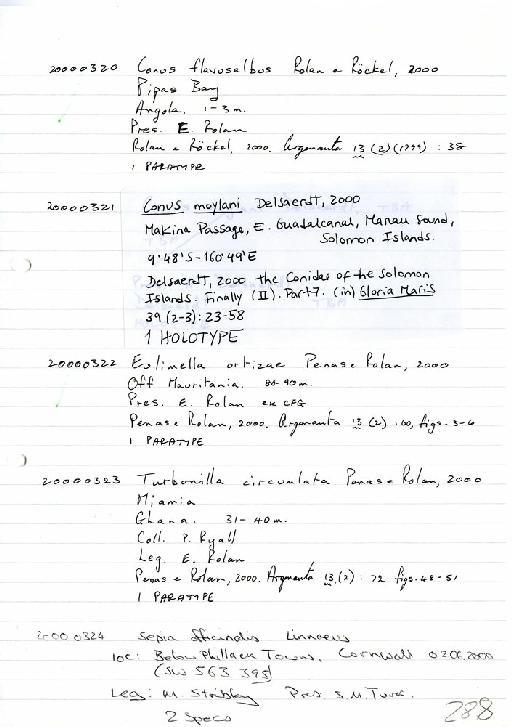 20000320 Conus flavusalbus Rolan & Röckel, 2000
Pipas Bay
Angola. 1-3m.
Pres. E. Rolan
Rolan & Röckel, 2000. Argonauta 13 (2) (1999) : 38
1 PARATYPE
20000321 Conus moylani Delsaerdt, 2000
Makina Passage, E. Guadalcanal, Marau Sound,
Solomon Islands.
9°48'S-160°49'E
Delsaerdt, 2000 the Conidae of the Solomon
Islands. Finally (II). Part 7. (in) Gloria Maris
39 (2-3): 23-58
1 HOLOTYPE
20000322 Eulimella ortizae Penas & Rolan, 2000
Off Mauritania. 80-90m.
Pres. E. Rolan ex
Penas & Rolan, 2000. Argonauta 13 (2) figs. 3-6
1 PARATYPE
20000323 Turbonilla circumlata Penas & Rolan, 2000
Miamia
Ghana. 31-40m.
Coll. P. Ryall
Leg. E. Rolan
Penas & Rolan, 2000. Argonauta 13 (2) : 72 figs. 48-51
1 PARATYPE
20000324 Sepia officinalis Linnaeus
loc: Below Towans, Cornwall
(SW 563 395)
Leg: M. Pres. S.M. Turk.
2 Specs
288